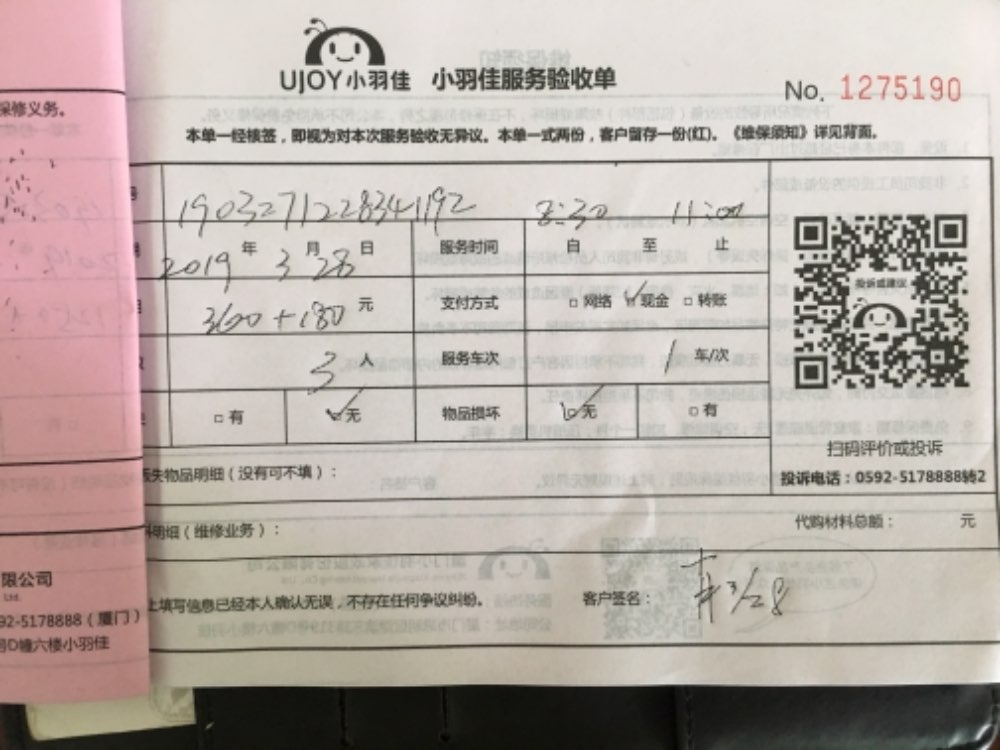 UJOY小羽佳 小羽佳服务验收单
No. 1275190
本单一经核签，即视为对本次服务验收无异议。本单一式两份，客户留存一份(红)。《维保须知》详见背面。
保修义务。
1903271228341192 8:30 11:00
2019年 3月 28日 服务时间 自 至 止
投诉或建议
360+180 元 支付方式 □网络 ☑现金 □转账
3 人 服务车次 1 车/次
□有 ☑无 物品损坏 ☑无 □有
扫码评价或投诉
失物品明细（没有可不填）：
投诉电话：0592-5178888转2
明细（维修业务）：
代购材料总额： 元
限公司
Ltd.
上填写信息已经本人确认无误，不存在任何争议纠纷。 客户签名： 3/28
92-5178888（厦门）
号D幢六楼小羽佳